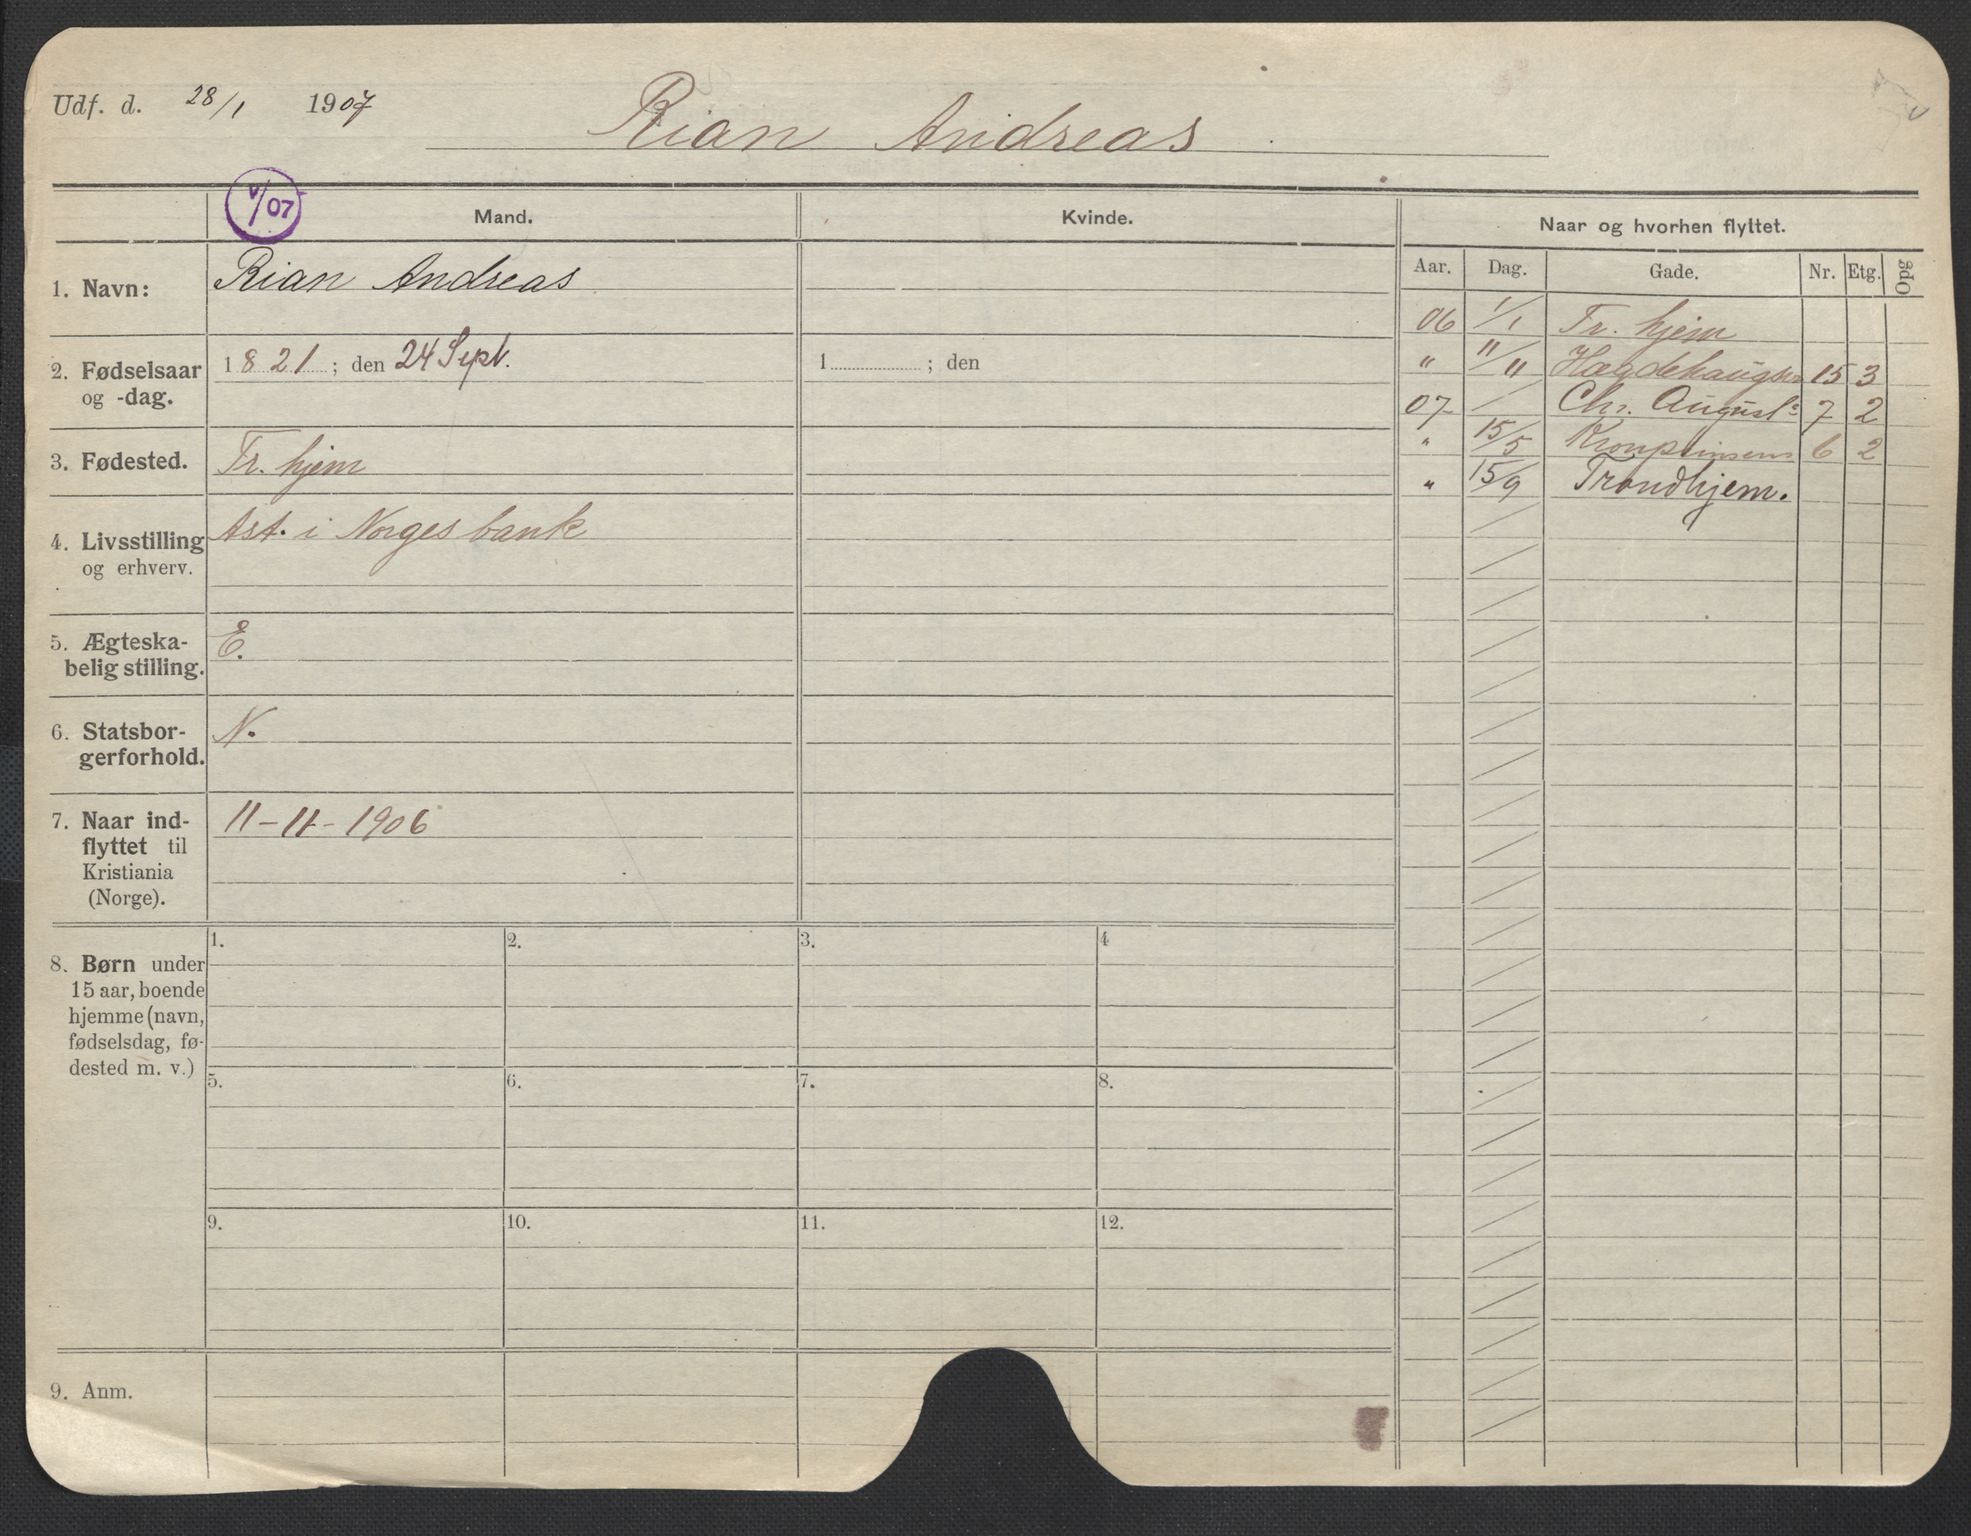 Udf. d. 28/1 1907
Rian Andreas
V/07
Mand. Kvinde. Naar og hvorhen flyttet.
Aar. Dag. Gade. Nr. Etg. Opg
1. Navn: Rian Andreas
2. Fødselsaar og -dag. 1821; den 24 Sept. 1 ; den
3. Fødested. Tr. hjem
4. Livsstilling og erhverv. Ast. i Norges bank
5. Ægteska-
belig stilling. E.
6. Statsbor-
gerforhold. N.
7. Naar ind-
flyttet til
Kristiania
(Norge). 11-11-1906
06 1/1 Tr. hjem
" 11/11 Hægdehaugsv 15 3
07 / Chr. Augusts 7 2
" 15/5 Kronprinsens 6 2
" 15/9 Trondhjem.
8. Børn under
15 aar, boende
hjemme (navn,
fødselsdag, fø-
dested m. v.)
1. 2. 3. 4
5. 6. 7. 8.
9. 10. 11. 12.
9. Anm.